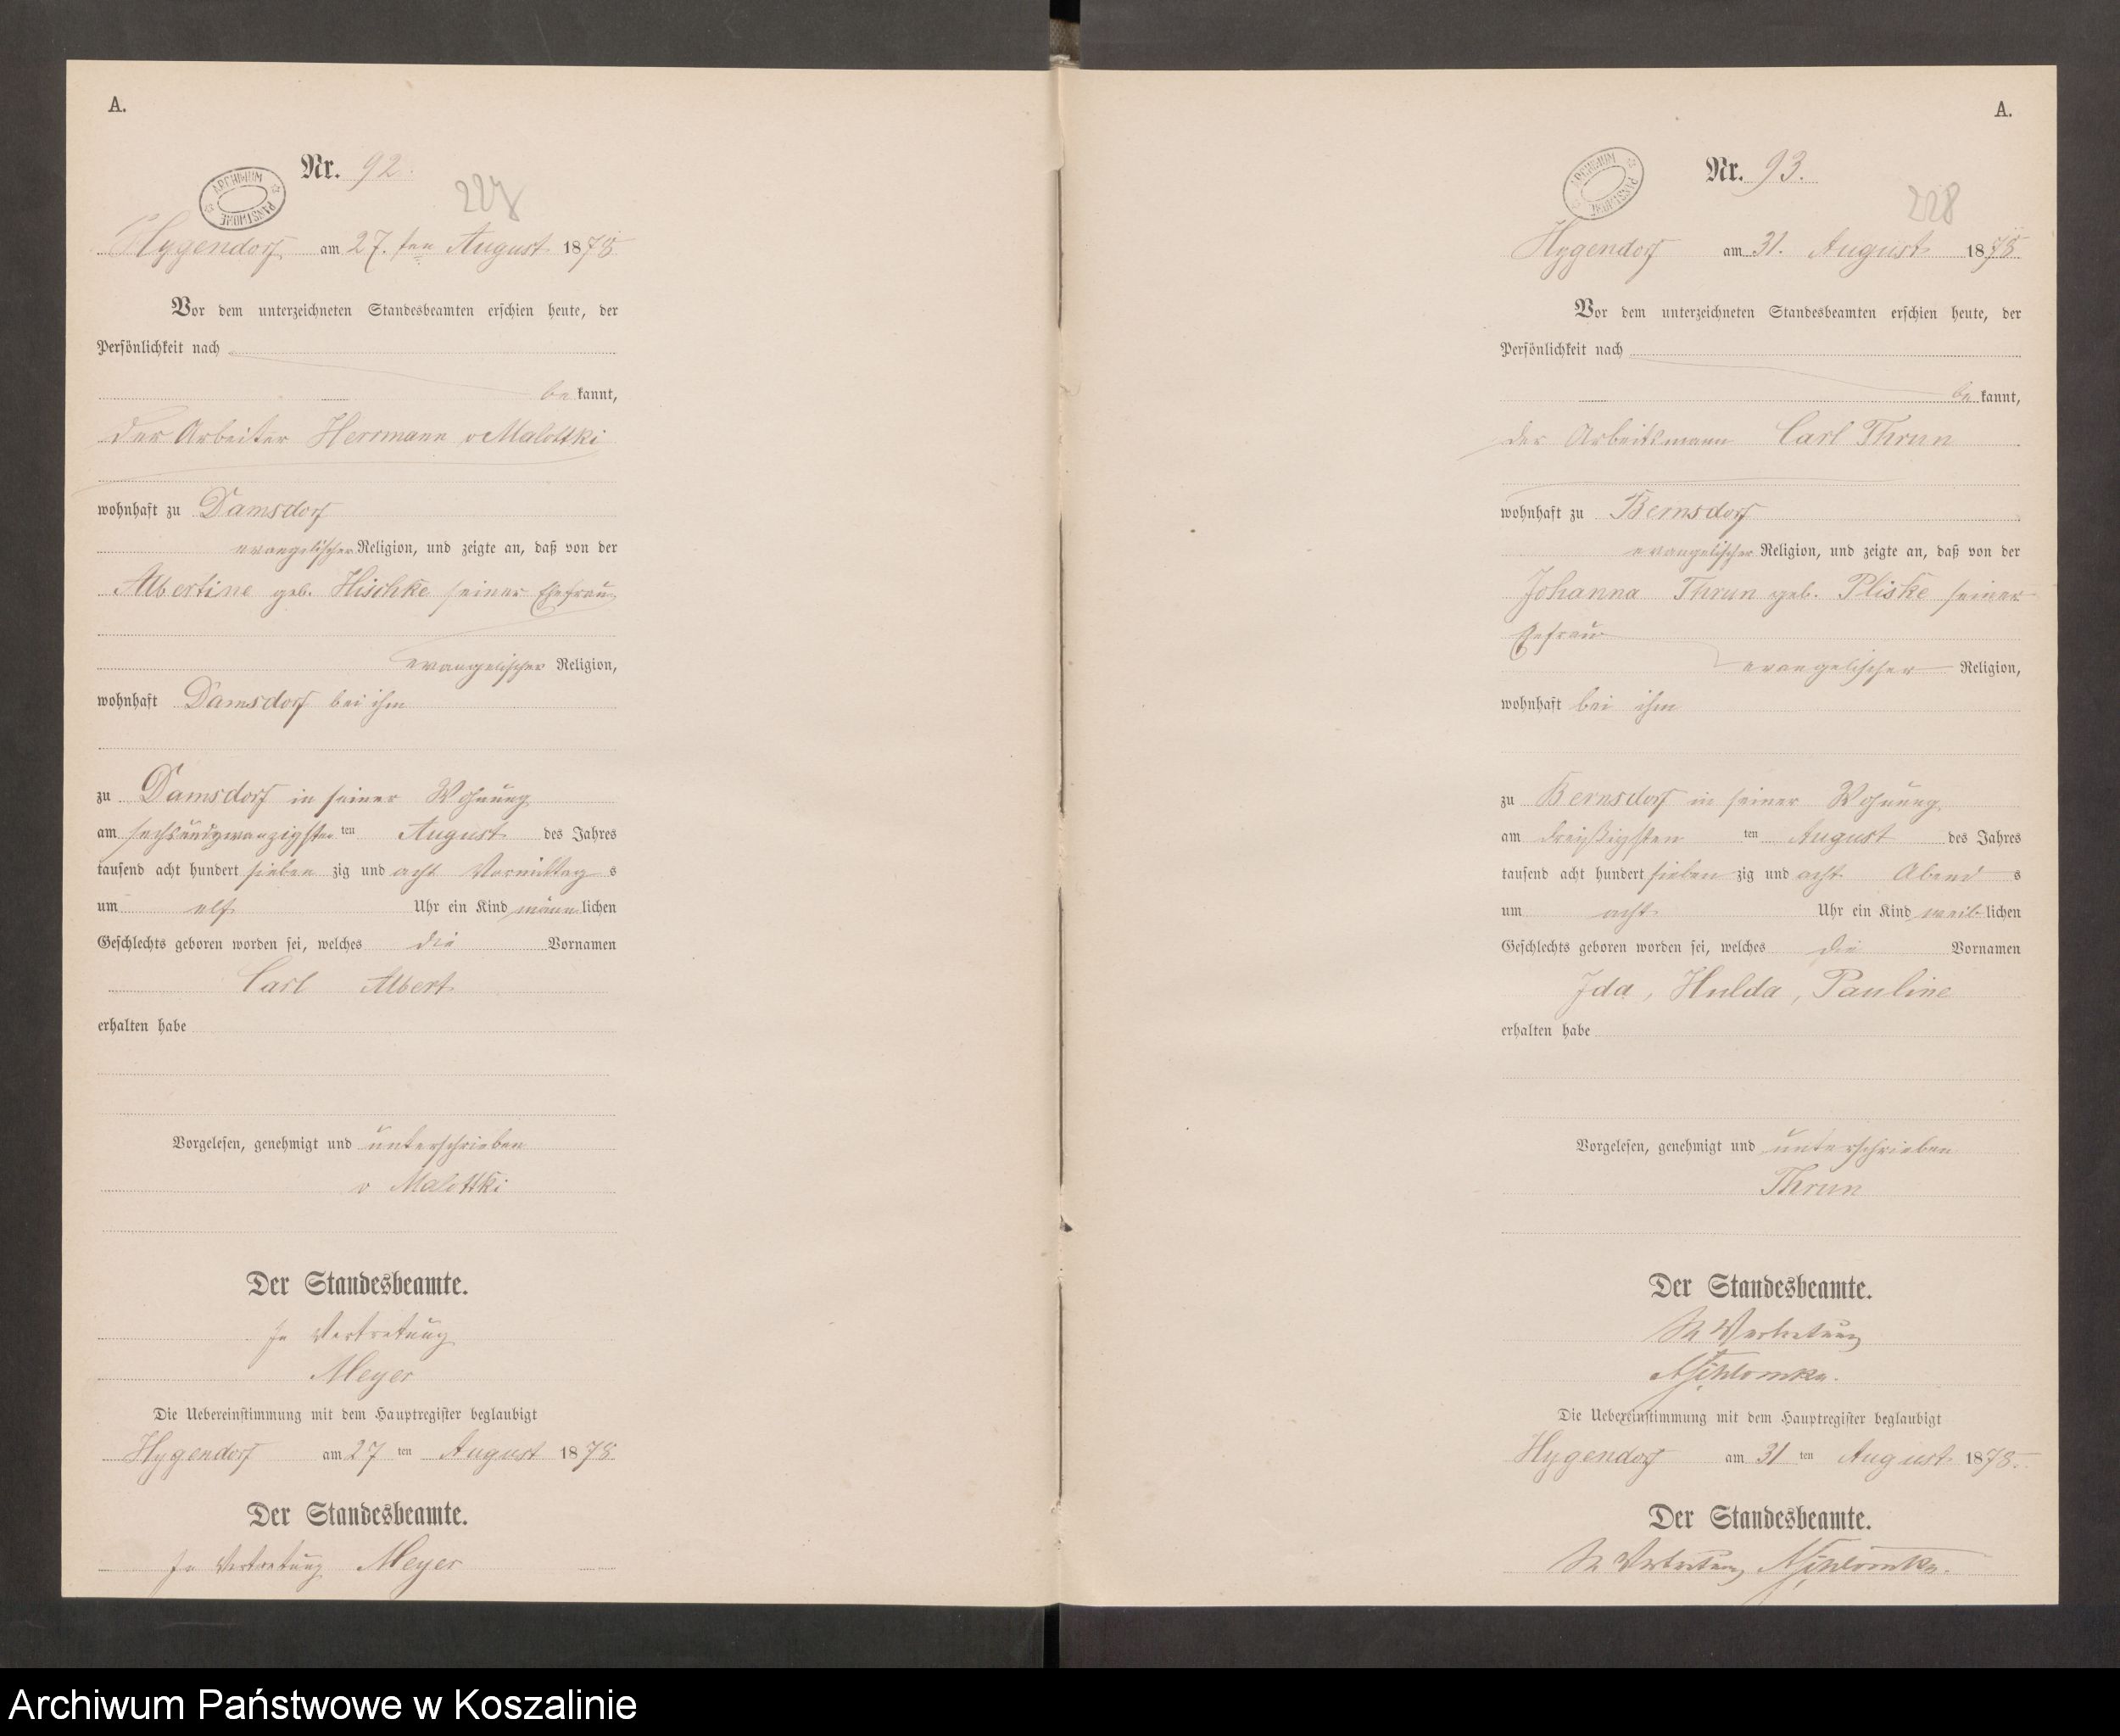 A.
Nr. 92.
ARCHIWUM PAŃSTWOWE
227
Hygendorf am 27. ten August 1878
Vor dem unterzeichneten Standesbeamten erschien heute, der
Persönlichkeit nach
be kannt,
der Arbeiter Herrmann v Malottki
wohnhaft zu Damsdorf
evangelischer Religion, und zeigte an, daß von der
Albertine geb. Hischke seiner Ehefrau
evangelischer Religion,
wohnhaft Damsdorf bei ihm
zu Damsdorf in seiner Wohnung
am sechsundzwanzigsten ten August des Jahres
tausend acht hundert sieben zig und acht Vormittag s
um elf Uhr ein Kind männ lichen
Geschlechts geboren worden sei, welches die Vornamen
Carl Albert
erhalten habe
Vorgelesen, genehmigt und unterschrieben
v Malottki
Der Standesbeamte.
In Vertretung
Meyer
Die Uebereinstimmung mit dem Hauptregister beglaubigt
Hygendorf am 27 ten August 1878
Der Standesbeamte.
In Vertretung Meyer
A.
Nr. 93.
ARCHIWUM PAŃSTWOWE
228
Hygendorf am 31. August 1878
Vor dem unterzeichneten Standesbeamten erschien heute, der
Persönlichkeit nach
be kannt,
der Arbeitsmann Carl Thrun
wohnhaft zu Bernsdorf
evangelischer Religion, und zeigte an, daß von der
Johanna Thrun geb. Pliske seiner
Ehefrau
evangelischer Religion,
wohnhaft bei ihm
zu Bernsdorf in seiner Wohnung
am dreißigsten ten August des Jahres
tausend acht hundert sieben zig und acht Abend s
um acht Uhr ein Kind weib lichen
Geschlechts geboren worden sei, welches die Vornamen
Ida, Hulda, Pauline
erhalten habe
Vorgelesen, genehmigt und unterschrieben
Thrun
Der Standesbeamte.
In Vertretung
Die Uebereinstimmung mit dem Hauptregister beglaubigt
Hygendorf am 31 ten August 1878.
Der Standesbeamte.
In Vertretung
Archiwum Państwowe w Koszalinie